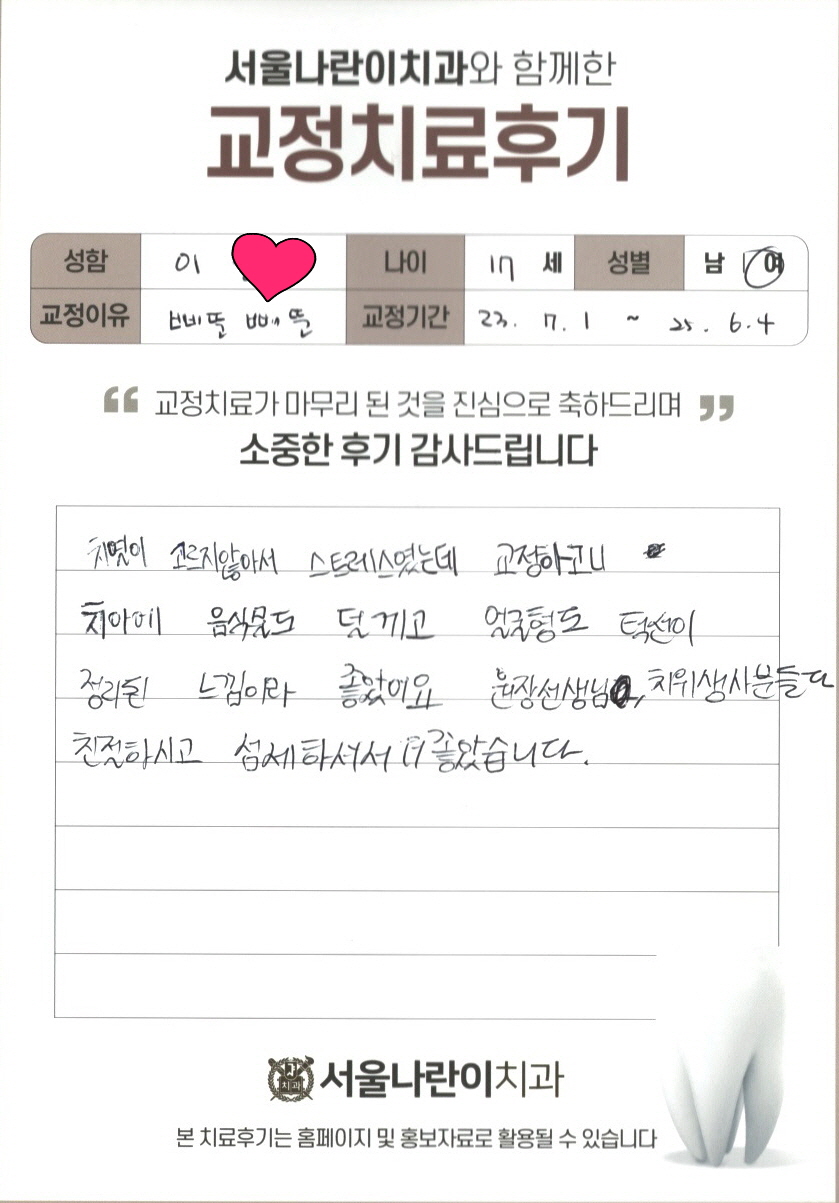 서울나란이치과와 함께한
교정치료후기
성함 이 나이 17 세 성별 남 여
교정이유 삐뚤 빼뚤 교정기간 23. 7. 1 ~ 25. 6. 4
“ 교정치료가 마무리 된 것을 진심으로 축하드리며 ”
소중한 후기 감사드립니다
치열이 고르지않아서 스트레스였는데 교정하고나니
치아에 음식물도 덜끼고 얼굴형도 턱선이
정리된 느낌이라 좋았어요 원장선생님, 치위생사분들 다
친절하시고 섬세하셔서 더 좋았습니다.
치과
서울나란이치과
본 치료후기는 홈페이지 및 홍보자료로 활용될 수 있습니다